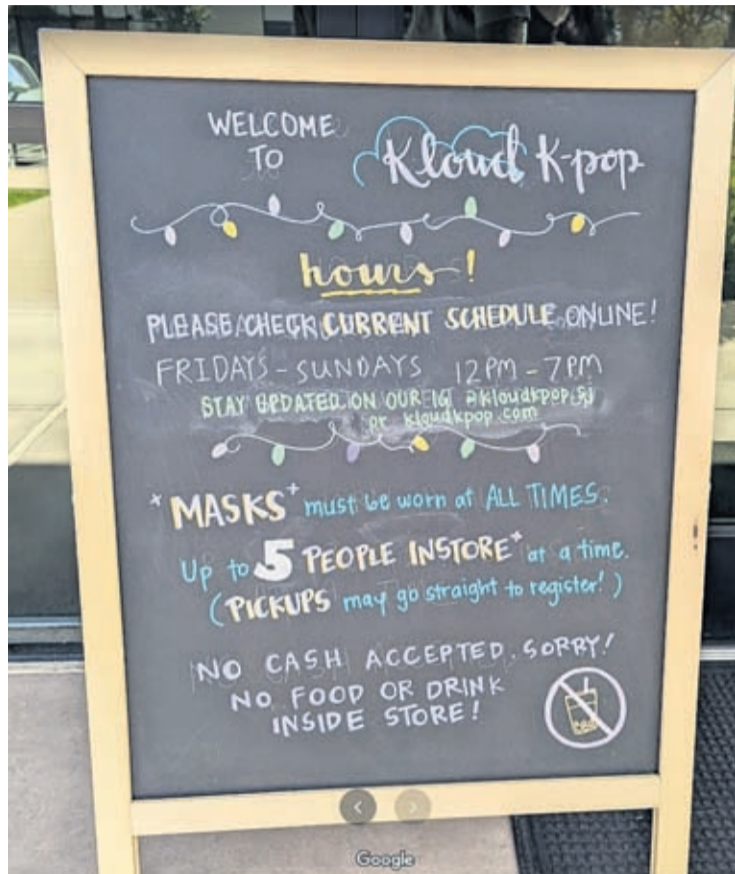 WELCOME
TO
Kloud K-pop
hours!
PLEASE CHECK CURRENT SCHEDULE ONLINE!
FRIDAYS - SUNDAYS 12PM - 7PM
STAY UPDATED ON OUR IG @kloudkpop_sj
or kloudkpop.com
*MASKS* must be worn at ALL TIMES.
Up to 5 PEOPLE INSTORE* at a time.
(PICKUPS may go straight to register!)
NO CASH ACCEPTED. SORRY!
NO FOOD OR DRINK
INSIDE STORE!
Google